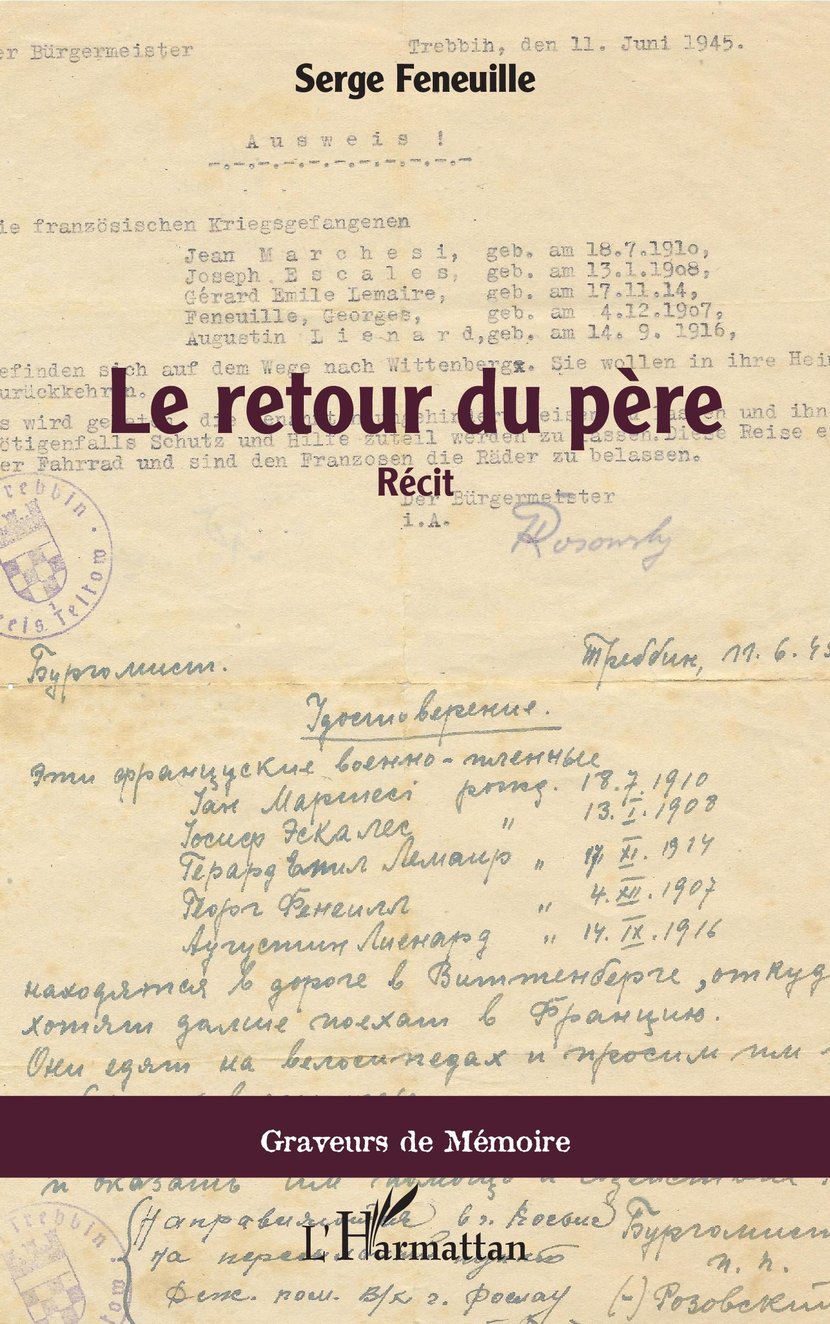 er Bürgermeister Trebbin, den 11. Juni 1945.
Serge Feneuille
A u s w e i s !
ie französischen Kriegsgefangenen
Jean M a r c h e s i, geb. am 18.7.1910,
Joseph E s c a l e s, geb. am 13.1.1908,
Gérard Emile Lemaire, geb. am 17.11.14,
Feneuille, Georges, geb. am 4.12.1907,
Augustin L i e n a r d, geb. am 14. 9. 1916,
efinden sich auf dem Wege nach Wittenberg. Sie wollen in ihre Hei
urückkehren.
Le retour du père
s wird die und ihn
ötigenfalls Schutz und Hilfe zuteil werden zu lassen. Diese Reise e
er Fahrrad und sind den Franzosen die Räder zu belassen.
Récit
Der Bürgermeister
i.A.
Rosowsky
Trebbin
Kreis Teltow
Бургомист. Треббин, 11. 6. 45
Удостоверение.
Эти француские военно-пленные
Іан Маршесі рожд. 18. 7. 1910
Іосиф Эскалес " 13. I. 1908
Герард Емил Лемаир " 17. XI. 1914
Георг Фенеилл " 4. XII. 1907
Аугустин Лиенард " 14. IX. 1916
находятся в дороге в Виттенберге, откуд
хотят далше поехат в Францию.
Они едят на велосипедах и просим им
Graveurs de Mémoire
и оказать им помощь и
Направляются в г. Бургомист
На п. п.
L'Harmattan
(-) Розовский
Trebbin